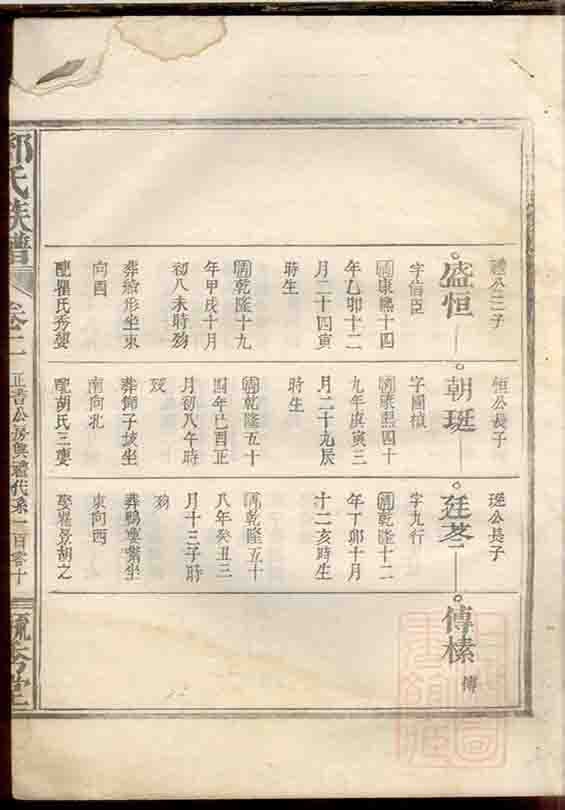 禮公三子
盛恒
字信臣
清康熙十四
年乙卯十二
月二十四寅
時生
清乾隆十九
年甲戌十月
初八未時歿
葬船形坐東
向酉
配瞿氏秀嬰
恒公長子
朝珽
字國楨
清康熙四十
九年庚寅三
月二十九辰
時生
清乾隆五十
四年己酉正
月初八午時
歿
葬獅子坡坐
南向北
配胡氏三嬰
珽公長子
廷
字九行
清乾隆十二
年丁卯十月
十二亥時生
清乾隆五十
八年癸丑三
月十三子時
歿
葬鴨嬰嘴坐
東向西
娶瞿景胡之
傳榛
傳
氏族譜
卷二
公房與禮代系一百零十
秀堂